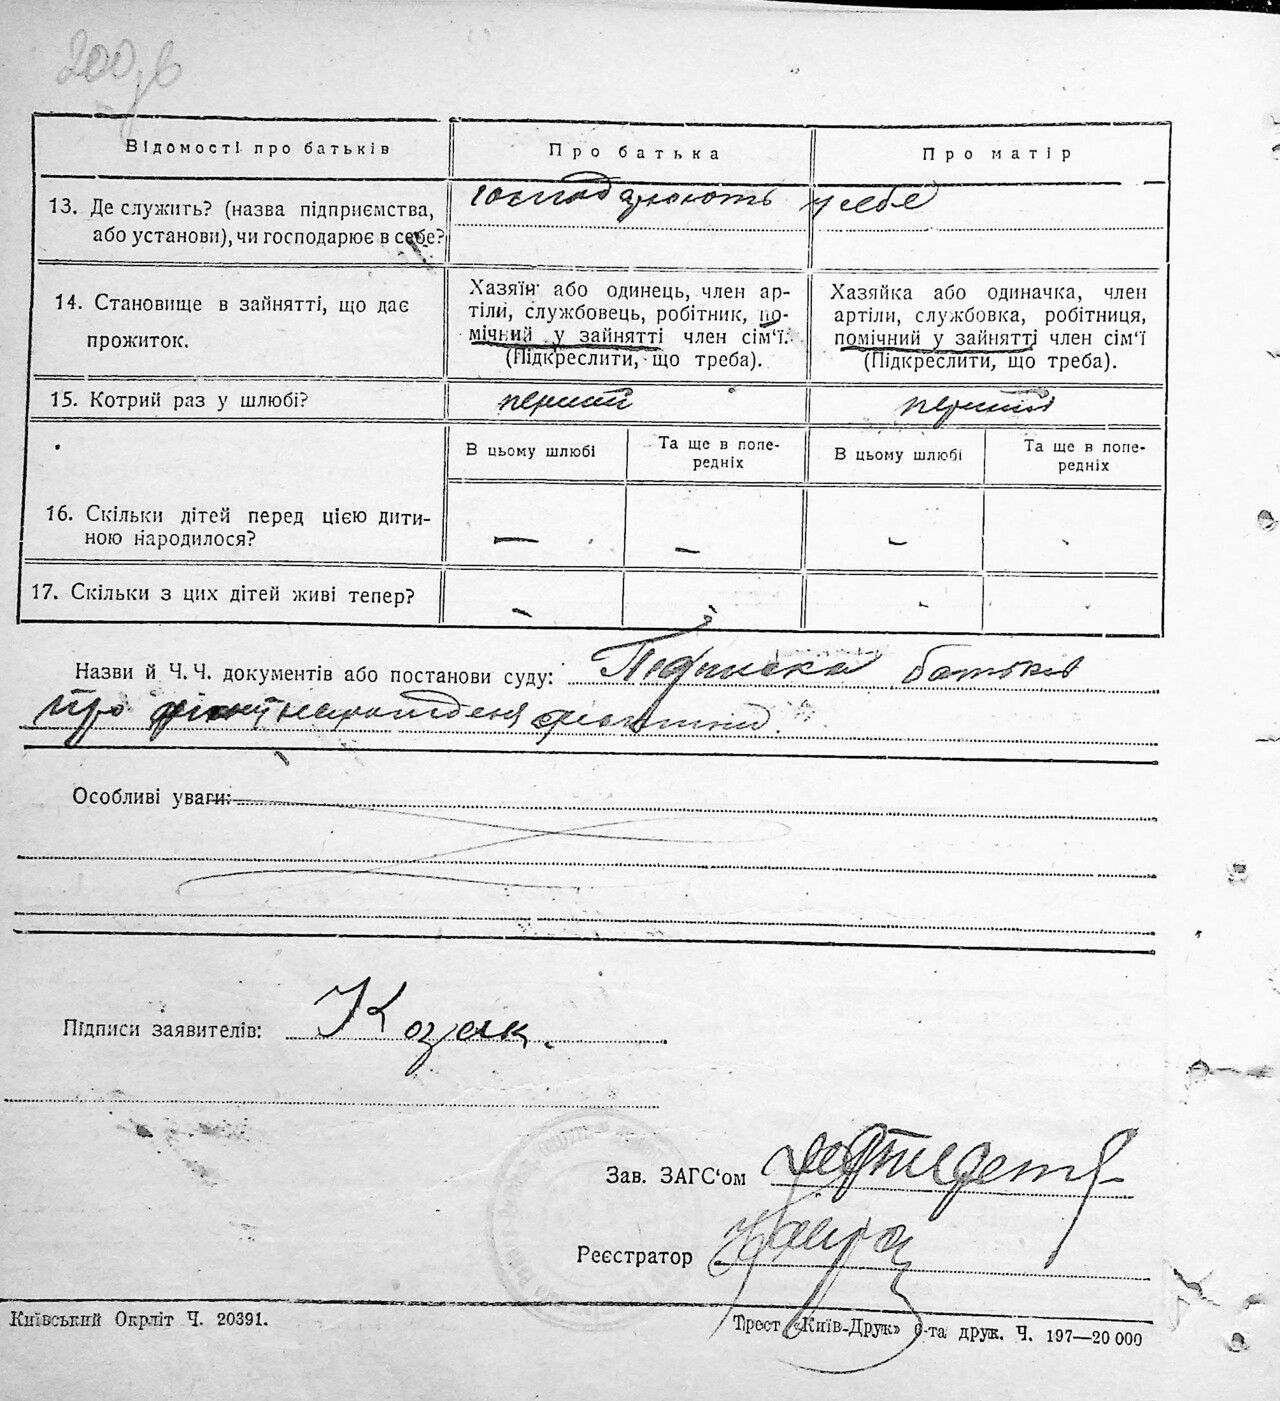 200 зв
Відомості про батьків
Про батька
Про матір
13. Де служить? (назва підприємства,
або установи), чи господарює в себе?
господарюють у себе
14. Становище в зайнятті, що дає
прожиток.
Хазяїн або одинець, член ар-
тіли, службовець, робітник, по-
мічний у зайнятті член сім‘ї.
(Підкреслити, що треба).
Хазяйка або одиначка, член
артіли, службовка, робітниця,
помічний у зайнятті член сім‘ї
(Підкреслити, що треба).
15. Котрий раз у шлюбі?
перший
перший
В цьому шлюбі
Та ще в попе-
редніх
В цьому шлюбі
Та ще в попе-
редніх
16. Скільки дітей перед цією дити-
ною народилося?
—
—
—
-
17. Скільки з цих дітей живі тепер?
-
-
-
-
Назви й Ч. Ч. документів або постанови суду: Підписка батьків
про народження дитини.
Особливі уваги:
Підписи заявителів: Козак.
Зав. ЗАГС‘ом
Реєстратор
Київський Окрліт Ч. 20391.
Трест «Київ-Друк» 6-та друк. Ч. 197—20 000